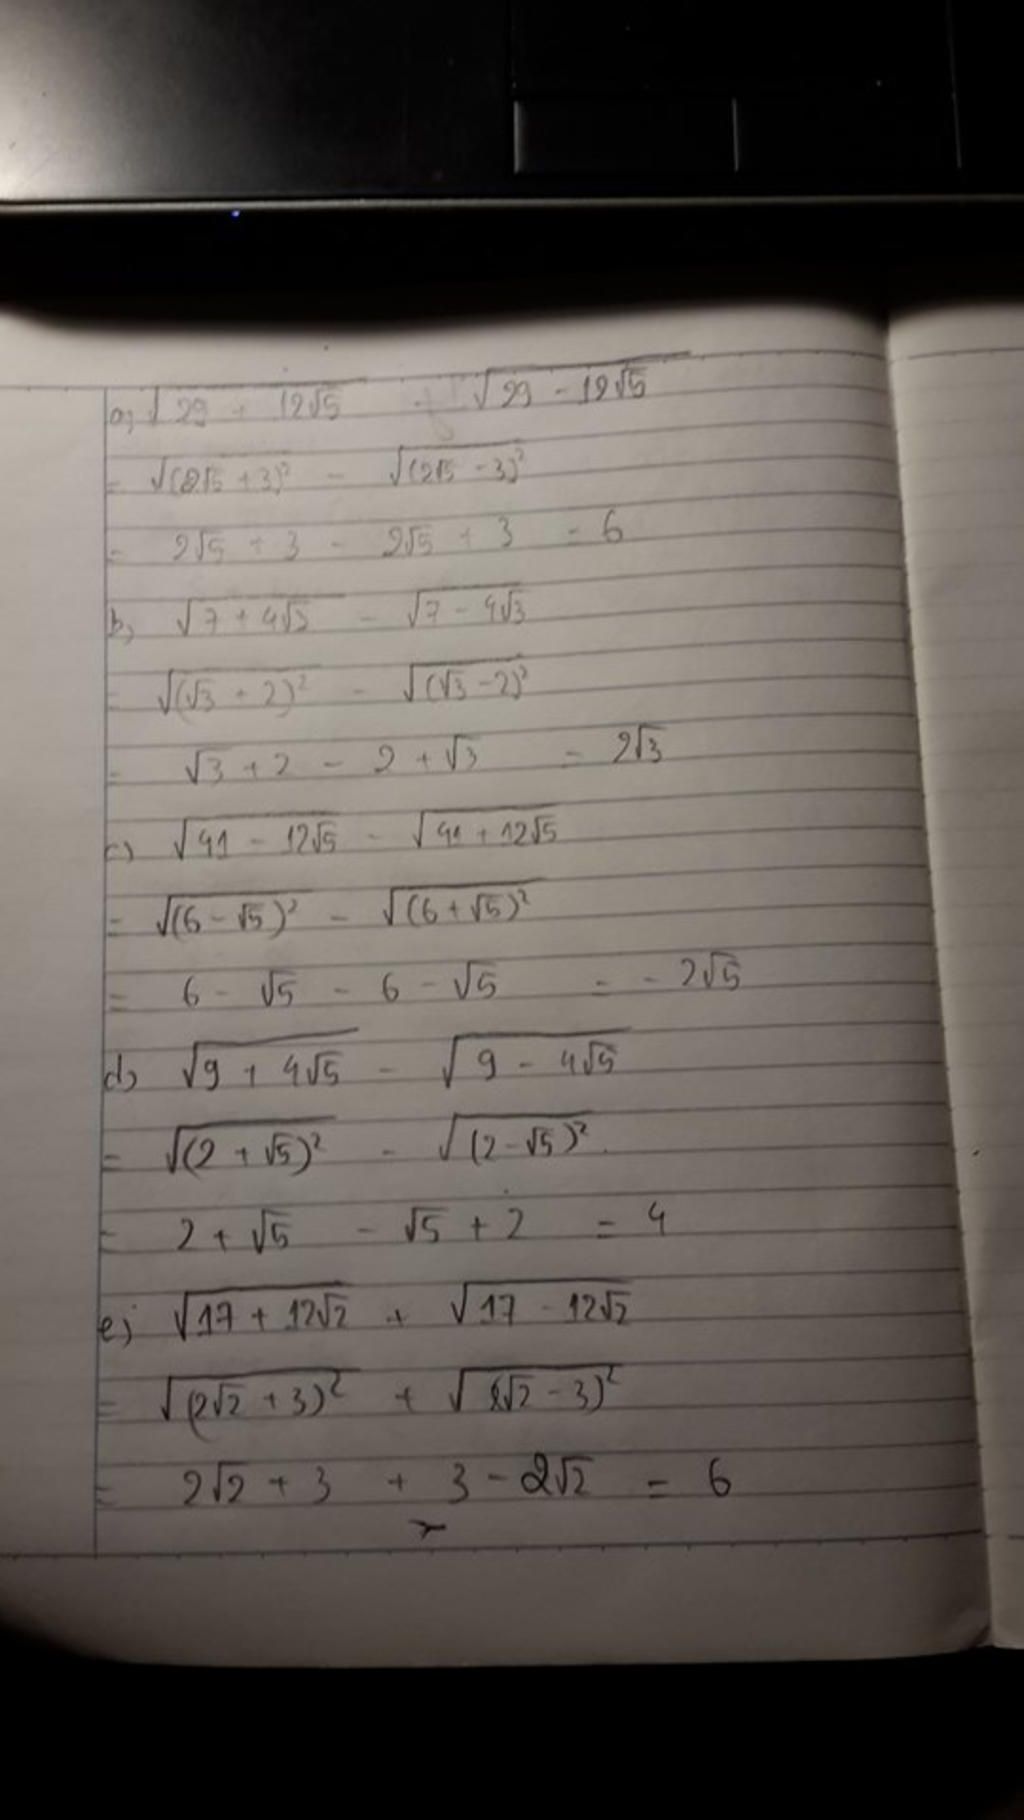 a, √(29 + 12√5) - √(29 - 12√5)
= √((2√5 + 3)²) - √((2√5 - 3)²)
= 2√5 + 3 - 2√5 + 3 = 6
b, √(7 + 4√3) - √(7 - 4√3)
= √((√3 + 2)²) - √((√3 - 2)²)
= √3 + 2 - 2 + √3 = 2√3
c) √(41 - 12√5) - √(41 + 12√5)
= √((6 - √5)²) - √((6 + √5)²)
= 6 - √5 - 6 - √5 = - 2√5
d) √(9 + 4√5) - √(9 - 4√5)
= √((2 + √5)²) - √((2 - √5)²)
= 2 + √5 - √5 + 2 = 4
e) √(17 + 12√2) + √(17 - 12√2)
= √((2√2 + 3)²) + √((2√2 - 3)²)
= 2√2 + 3 + 3 - 2√2 = 6